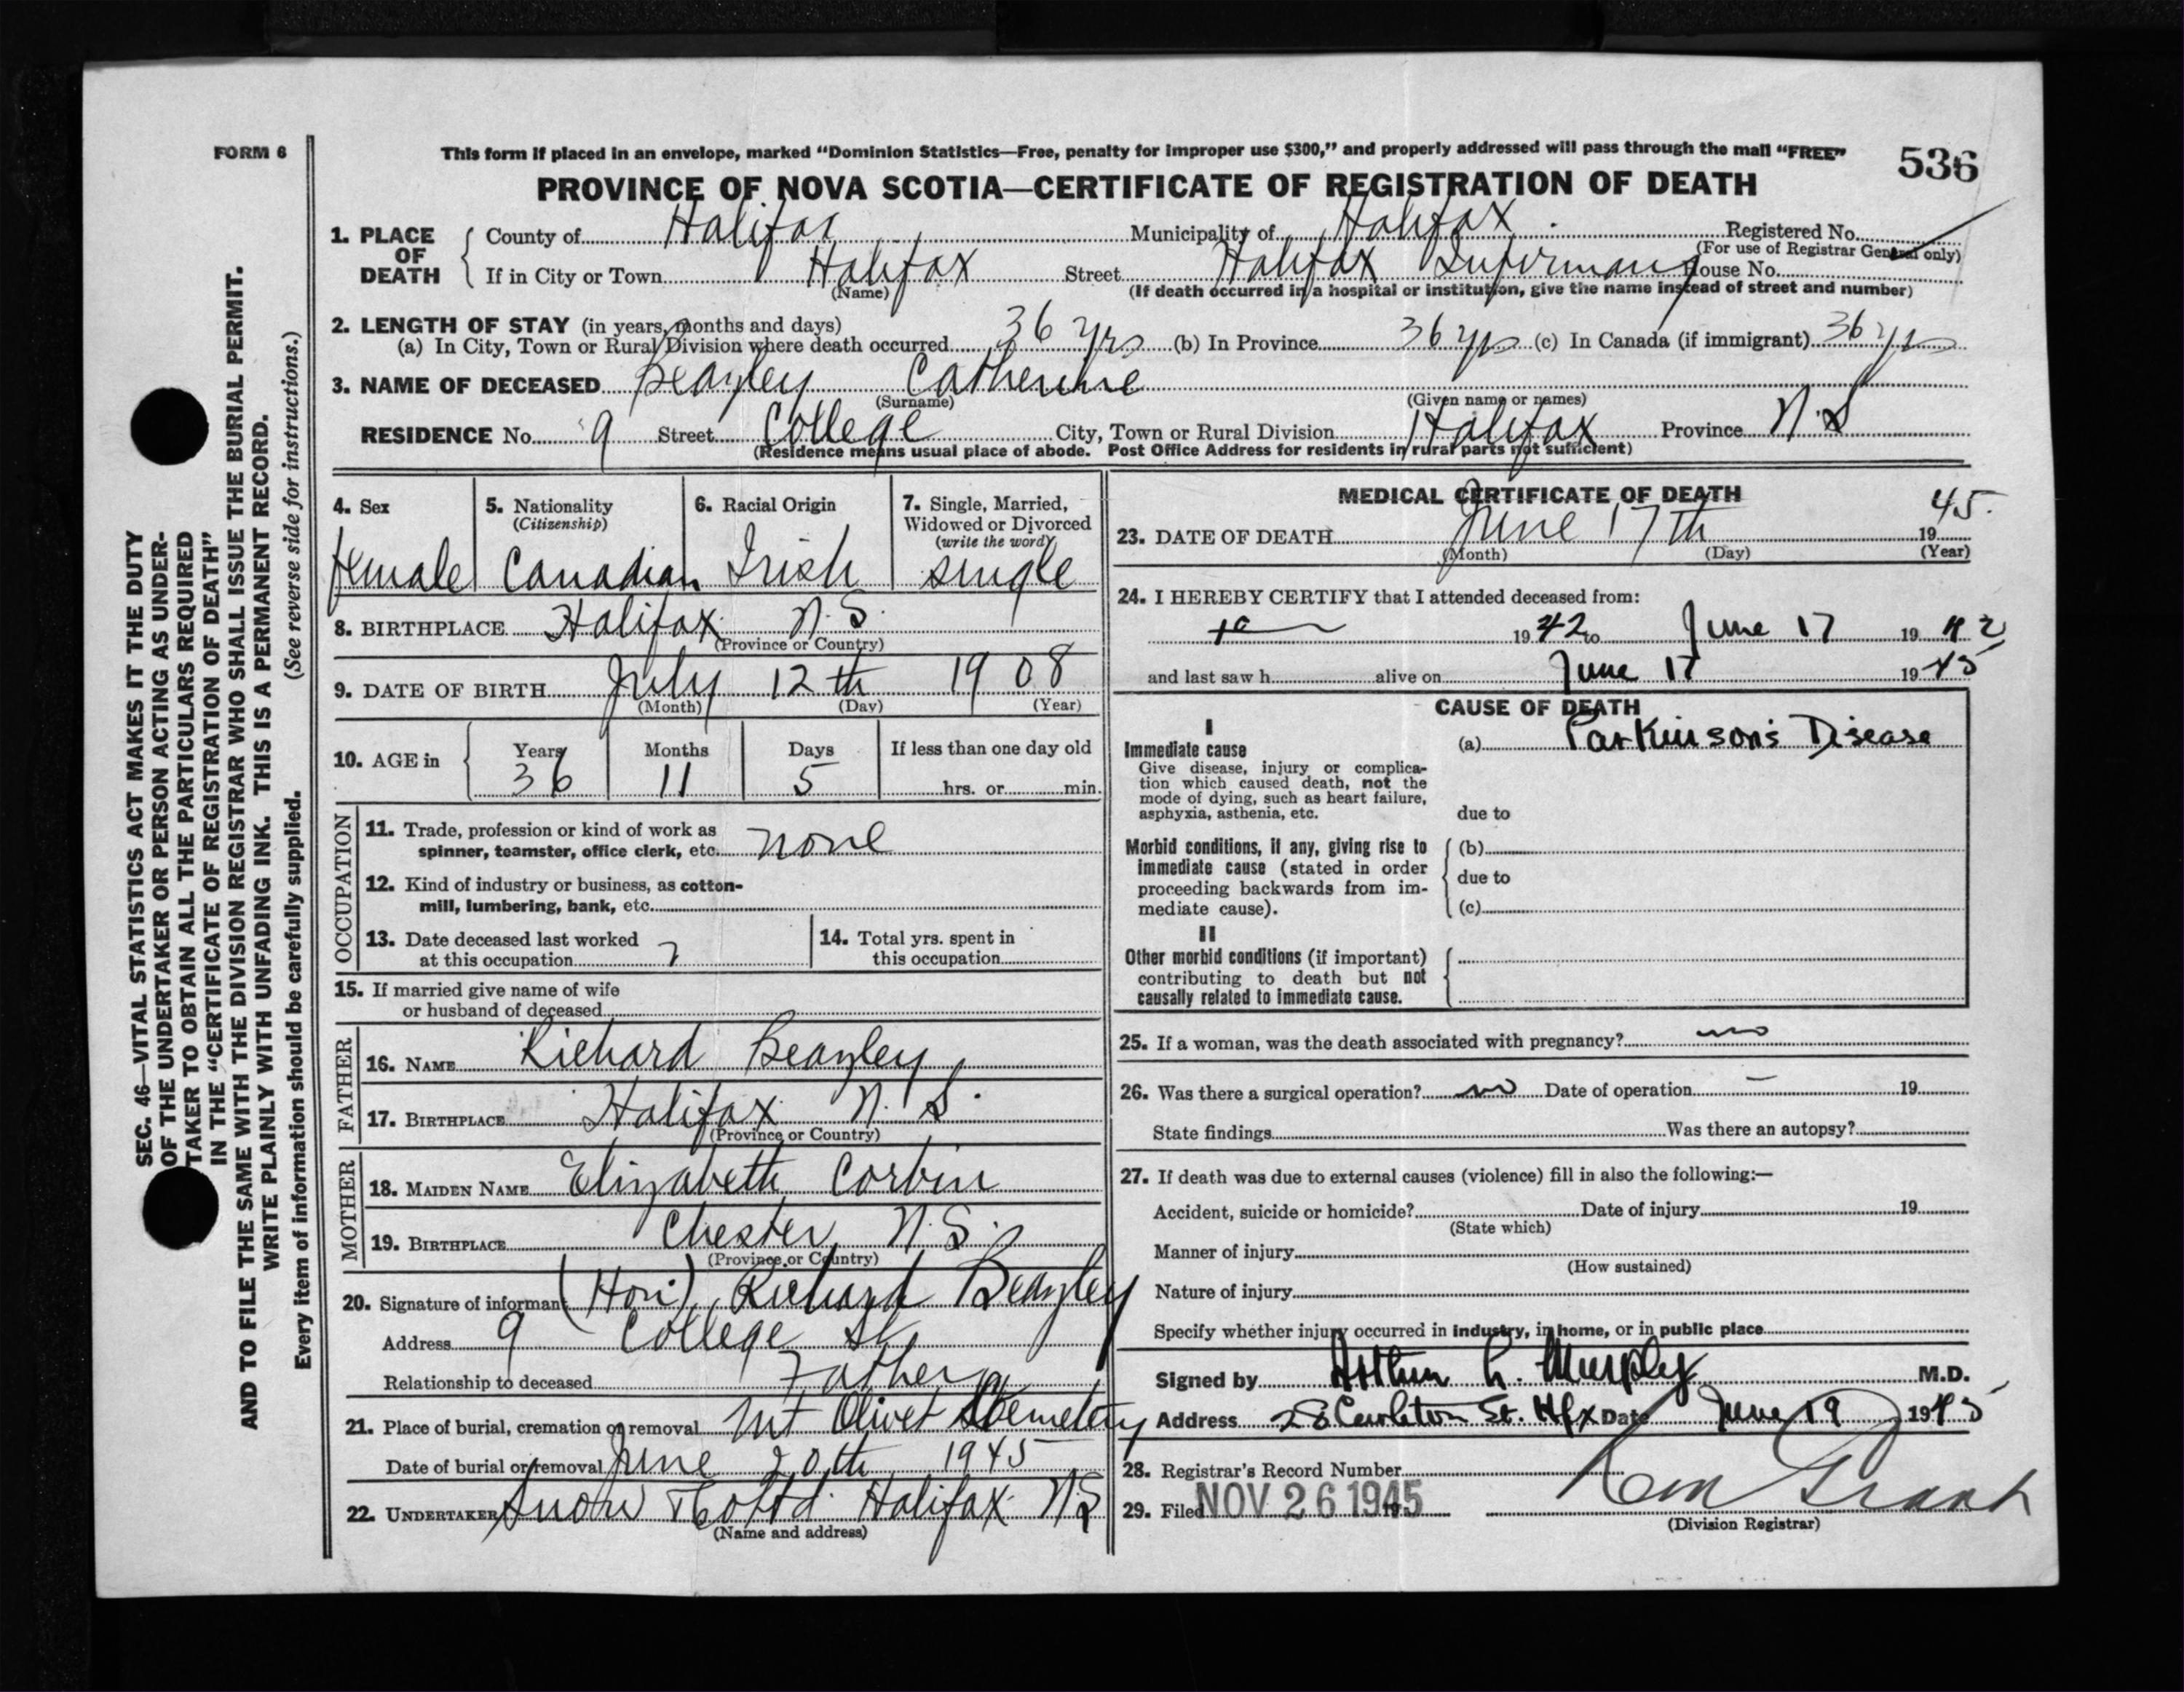 FORM 6
This form if placed in an envelope, marked “Dominion Statistics—Free, penalty for improper use $300,” and properly addressed will pass through the mail “FREE”
536
PROVINCE OF NOVA SCOTIA—CERTIFICATE OF REGISTRATION OF DEATH
1. PLACE OF DEATH
County of Halifax Municipality of Halifax Registered No.
(For use of Registrar General only)
If in City or Town Halifax Street Halifax Infirmary House No.
(Name) (If death occurred in a hospital or institution, give the name instead of street and number)
2. LENGTH OF STAY (in years, months and days)
(a) In City, Town or Rural Division where death occurred 36 yrs (b) In Province 36 yrs (c) In Canada (if immigrant) 36 yrs
3. NAME OF DECEASED Beazley Catherine
(Surname) (Given name or names)
RESIDENCE No. 9 Street College City, Town or Rural Division Halifax Province N.S
(Residence means usual place of abode. Post Office Address for residents in rural parts not sufficient)
4. Sex
female
5. Nationality
(Citizenship)
Canadian
6. Racial Origin
Irish
7. Single, Married,
Widowed or Divorced
(write the word)
single
8. BIRTHPLACE Halifax N.S.
(Province or Country)
9. DATE OF BIRTH July 12th 1908
(Month) (Day) (Year)
10. AGE in
Years Months Days If less than one day old
36 11 5 hrs. or min.
OCCUPATION
11. Trade, profession or kind of work as
spinner, teamster, office clerk, etc. none
12. Kind of industry or business, as cotton-
mill, lumbering, bank, etc.
13. Date deceased last worked
at this occupation
14. Total yrs. spent in
this occupation
15. If married give name of wife
or husband of deceased
FATHER
16. NAME Richard Beazley
17. BIRTHPLACE Halifax N.S.
(Province or Country)
MOTHER
18. MAIDEN NAME Elizabeth Corbin
19. BIRTHPLACE Chester N.S.
(Province or Country)
20. Signature of informant (Hon.) Richard Beazley
Address 9 College St.
Relationship to deceased Father
21. Place of burial, cremation or removal Mt Olivet Cemetery
Date of burial or removal June 20th 1945
22. UNDERTAKER Snow & Co Ltd. Halifax NS
(Name and address)
MEDICAL CERTIFICATE OF DEATH
23. DATE OF DEATH June 17th 19 45.
(Month) (Day) (Year)
24. I HEREBY CERTIFY that I attended deceased from:
19 42 to June 17 19
and last saw h alive on June 17 19 45
CAUSE OF DEATH
I
Immediate cause
Give disease, injury or complica-
tion which caused death, not the
mode of dying, such as heart failure,
asphyxia, asthenia, etc.
(a) Parkinson's Disease
due to
Morbid conditions, if any, giving rise to
immediate cause (stated in order
proceeding backwards from im-
mediate cause).
(b)
due to
(c)
II
Other morbid conditions (if important)
contributing to death but not
causally related to immediate cause.
25. If a woman, was the death associated with pregnancy? no
26. Was there a surgical operation? no Date of operation — 19
State findings Was there an autopsy?
27. If death was due to external causes (violence) fill in also the following:—
Accident, suicide or homicide? Date of injury 19
(State which)
Manner of injury
(How sustained)
Nature of injury
Specify whether injury occurred in industry, in home, or in public place
Signed by Arthur L. Murphy M.D.
Address 28 Carleton St. Hfx Date June 19 1945
28. Registrar's Record Number
29. Filed NOV 26 1945 19
(Division Registrar)
SEC. 46—VITAL STATISTICS ACT MAKES IT THE DUTY
OF THE UNDERTAKER OR PERSON ACTING AS UNDER-
TAKER TO OBTAIN ALL THE PARTICULARS REQUIRED
IN THE “CERTIFICATE OF REGISTRATION OF DEATH”
AND TO FILE THE SAME WITH THE DIVISION REGISTRAR WHO SHALL ISSUE THE BURIAL PERMIT.
WRITE PLAINLY WITH UNFADING INK. THIS IS A PERMANENT RECORD.
Every item of information should be carefully supplied. (See reverse side for instructions.)